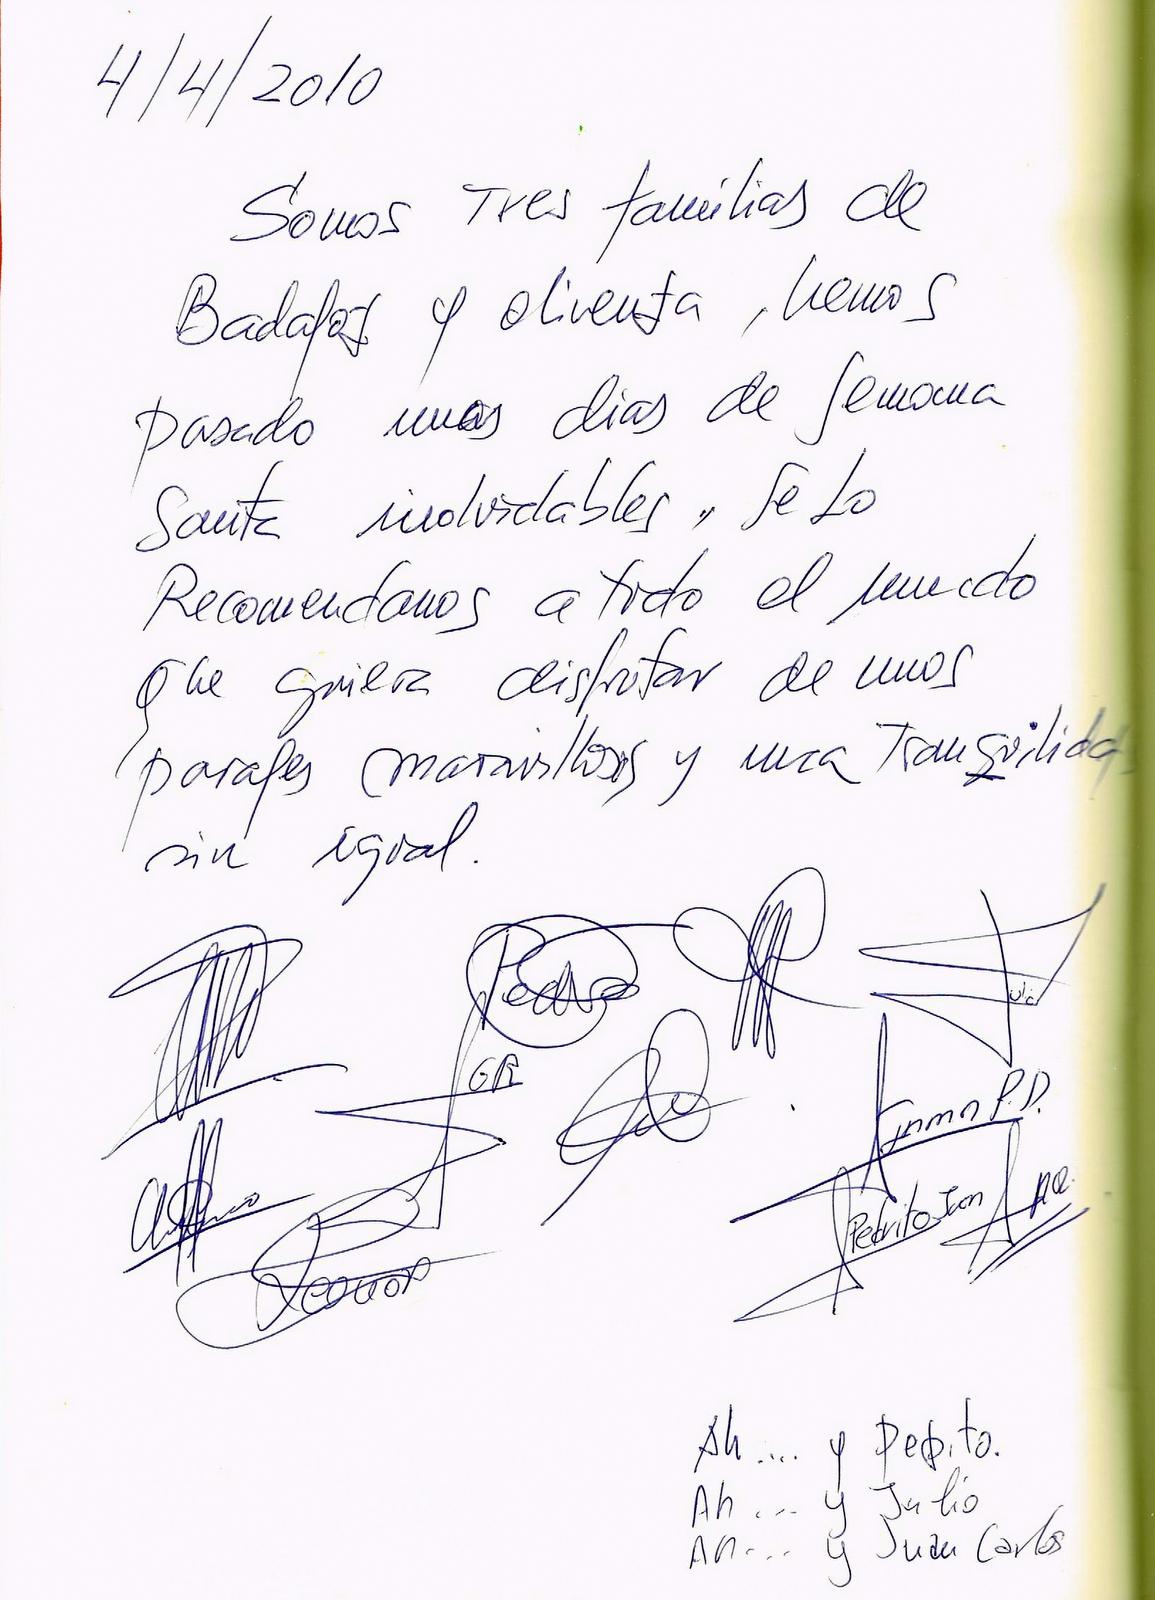 4/4/2010
Somos Tres familias de
Badajoz y olivenza, hemos
pasado unos dias de Semana
Santa inolvidables, se lo
Recomendamos a todo el mundo
que quiera disfrutar de unos
parajes maravillosos y una Tranquilidad
sin igual.
Pedro
Julio
GR
Inma P.D.
Pedrito Juan
Leonor
Ah.... y Pepito.
Ah ... y Julio
Ah.... y Juan Carlos